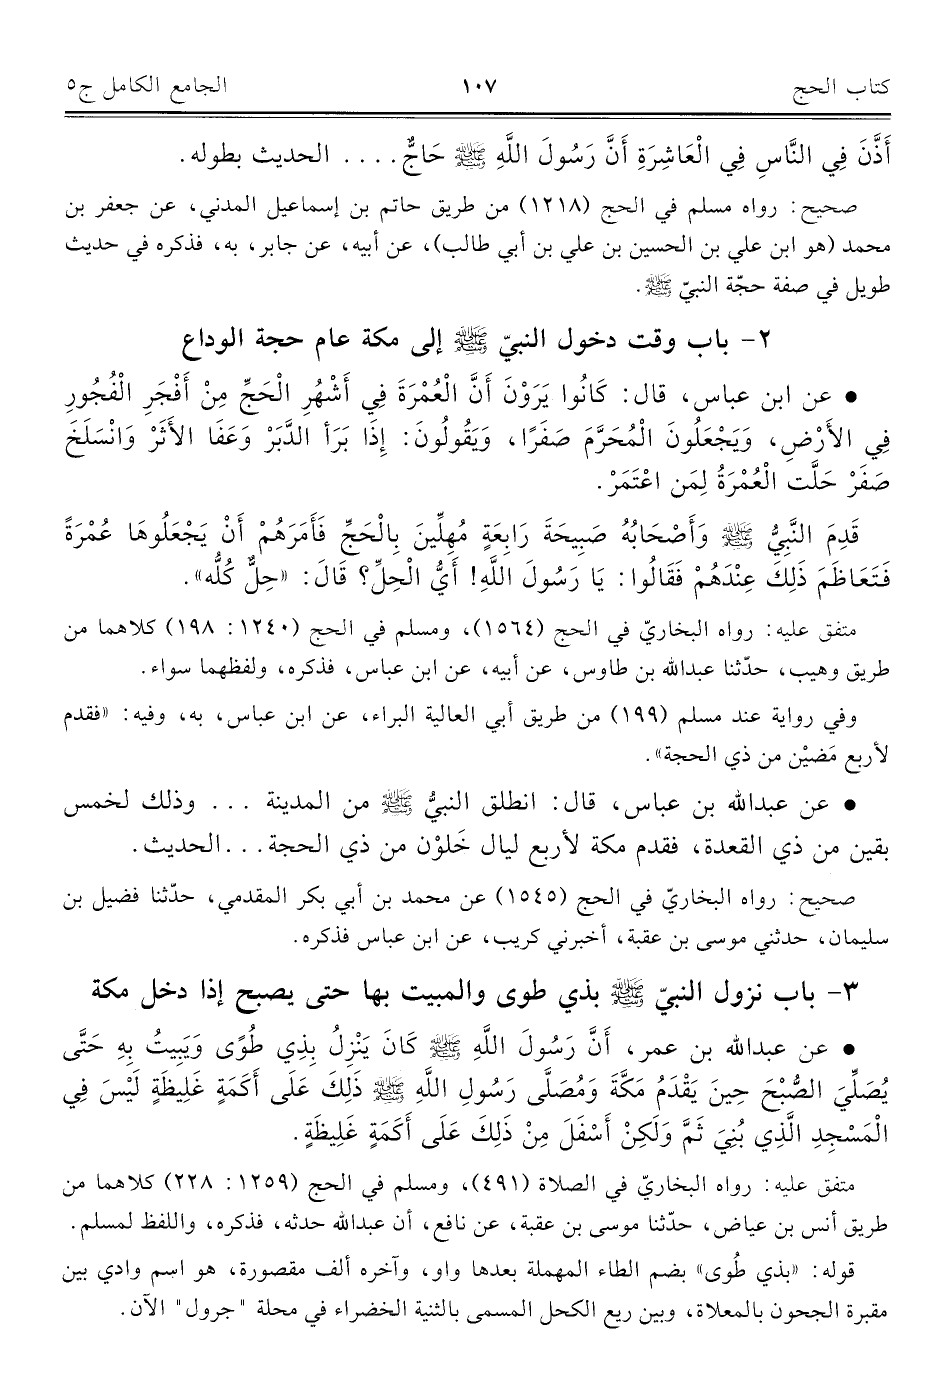 كتاب الحج ١٠٧ الجامع الكامل ج٥
أَذَّنَ فِي النَّاسِ فِي الْعَاشِرَةِ أَنَّ رَسُولَ اللَّهِ ﷺ حَاجٌّ.... الحديث بطوله.
صحيح: رواه مسلم في الحج (١٢١٨) من طريق حاتم بن إسماعيل المدني، عن جعفر بن
محمد (هو ابن علي بن الحسين بن علي بن أبي طالب)، عن أبيه، عن جابر، به، فذكره في حديث
طويل في صفة حجّة النبيّ ﷺ.
٢- باب وقت دخول النبيّ ﷺ إلى مكة عام حجة الوداع
• عن ابن عباس، قال: كَانُوا يَرَوْنَ أَنَّ الْعُمْرَةَ فِي أَشْهُرِ الْحَجِّ مِنْ أَفْجَرِ الْفُجُورِ
فِي الأَرْضِ، وَيَجْعَلُونَ الْمُحَرَّمَ صَفَرًا، وَيَقُولُونَ: إِذَا بَرَأَ الدَّبَرْ وَعَفَا الأَثَرْ وَانْسَلَخَ
صَفَرْ حَلَّت الْعُمْرَةُ لِمَن اعْتَمَرْ.
قَدِمَ النَّبِيُّ ﷺ وَأَصْحَابُهُ صَبِيحَةَ رَابِعَةٍ مُهِلِّينَ بِالْحَجِّ فَأَمَرَهُمْ أَنْ يَجْعَلُوهَا عُمْرَةً
فَتَعَاظَمَ ذَلِكَ عِنْدَهُمْ فَقَالُوا: يَا رَسُولَ اللَّهِ! أَيُّ الْحِلِّ؟ قَالَ: «حِلٌّ كُلُّه».
متفق عليه: رواه البخاريّ في الحج (١٥٦٤)، ومسلم في الحج (١٢٤٠: ١٩٨) كلاهما من
طريق وهيب، حدّثنا عبدالله بن طاوس، عن أبيه، عن ابن عباس، فذكره، ولفظهما سواء.
وفي رواية عند مسلم (١٩٩) من طريق أبي العالية البراء، عن ابن عباس، به، وفيه: «فقدم
لأربع مَضيْن من ذي الحجة».
• عن عبدالله بن عباس، قال: انطلق النبيُّ ﷺ من المدينة ... وذلك لخمس
بقين من ذي القعدة، فقدم مكة لأربع ليال خَلوْن من ذي الحجة...الحديث.
صحيح: رواه البخاريّ في الحج (١٥٤٥) عن محمد بن أبي بكر المقدمي، حدّثنا فضيل بن
سليمان، حدثني موسى بن عقبة، أخبرني كريب، عن ابن عباس فذكره.
٣- باب نزول النبيّ ﷺ بذي طوى والمبيت بها حتى يصبح إذا دخل مكة
• عن عبدالله بن عمر، أَنَّ رَسُولَ اللَّهِ ﷺ كَانَ يَنْزِلُ بِذِي طُوًى وَيَبِيتُ بِهِ حَتَّى
يُصَلِّيَ الصُّبْحَ حِينَ يَقْدَمُ مَكَّةَ وَمُصَلَّى رَسُولِ اللَّهِ ﷺ ذَلِكَ عَلَى أَكَمَةٍ غَلِيظَةٍ لَيْسَ فِي
الْمَسْجِدِ الَّذِي بُنِيَ ثَمَّ وَلَكِنْ أَسْفَلَ مِنْ ذَلِكَ عَلَى أَكَمَةٍ غَلِيظَةٍ.
متفق عليه: رواه البخاريّ في الصلاة (٤٩١)، ومسلم في الحج (١٢٥٩: ٢٢٨) كلاهما من
طريق أنس بن عياض، حدّثنا موسى بن عقبة، عن نافع، أن عبدالله حدثه، فذكره، واللفظ لمسلم.
قوله: «بذي طُوى» بضم الطاء المهملة بعدها واو، وآخره ألف مقصورة، هو اسم وادي بين
مقبرة الجحون بالمعلاة، وبين ريع الكحل المسمى بالثنية الخضراء في محلة "جرول" الآن.